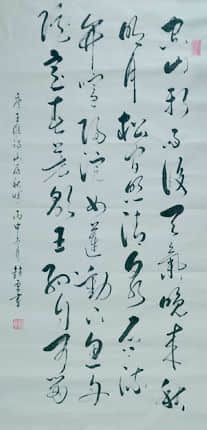 空山新雨後天氣晚來秋
明月松間照清泉石上流
竹喧歸浣女蓮動下漁舟
隨意春芳歇王孫自可留
唐王維詩山居秋暝 丙申 月 書